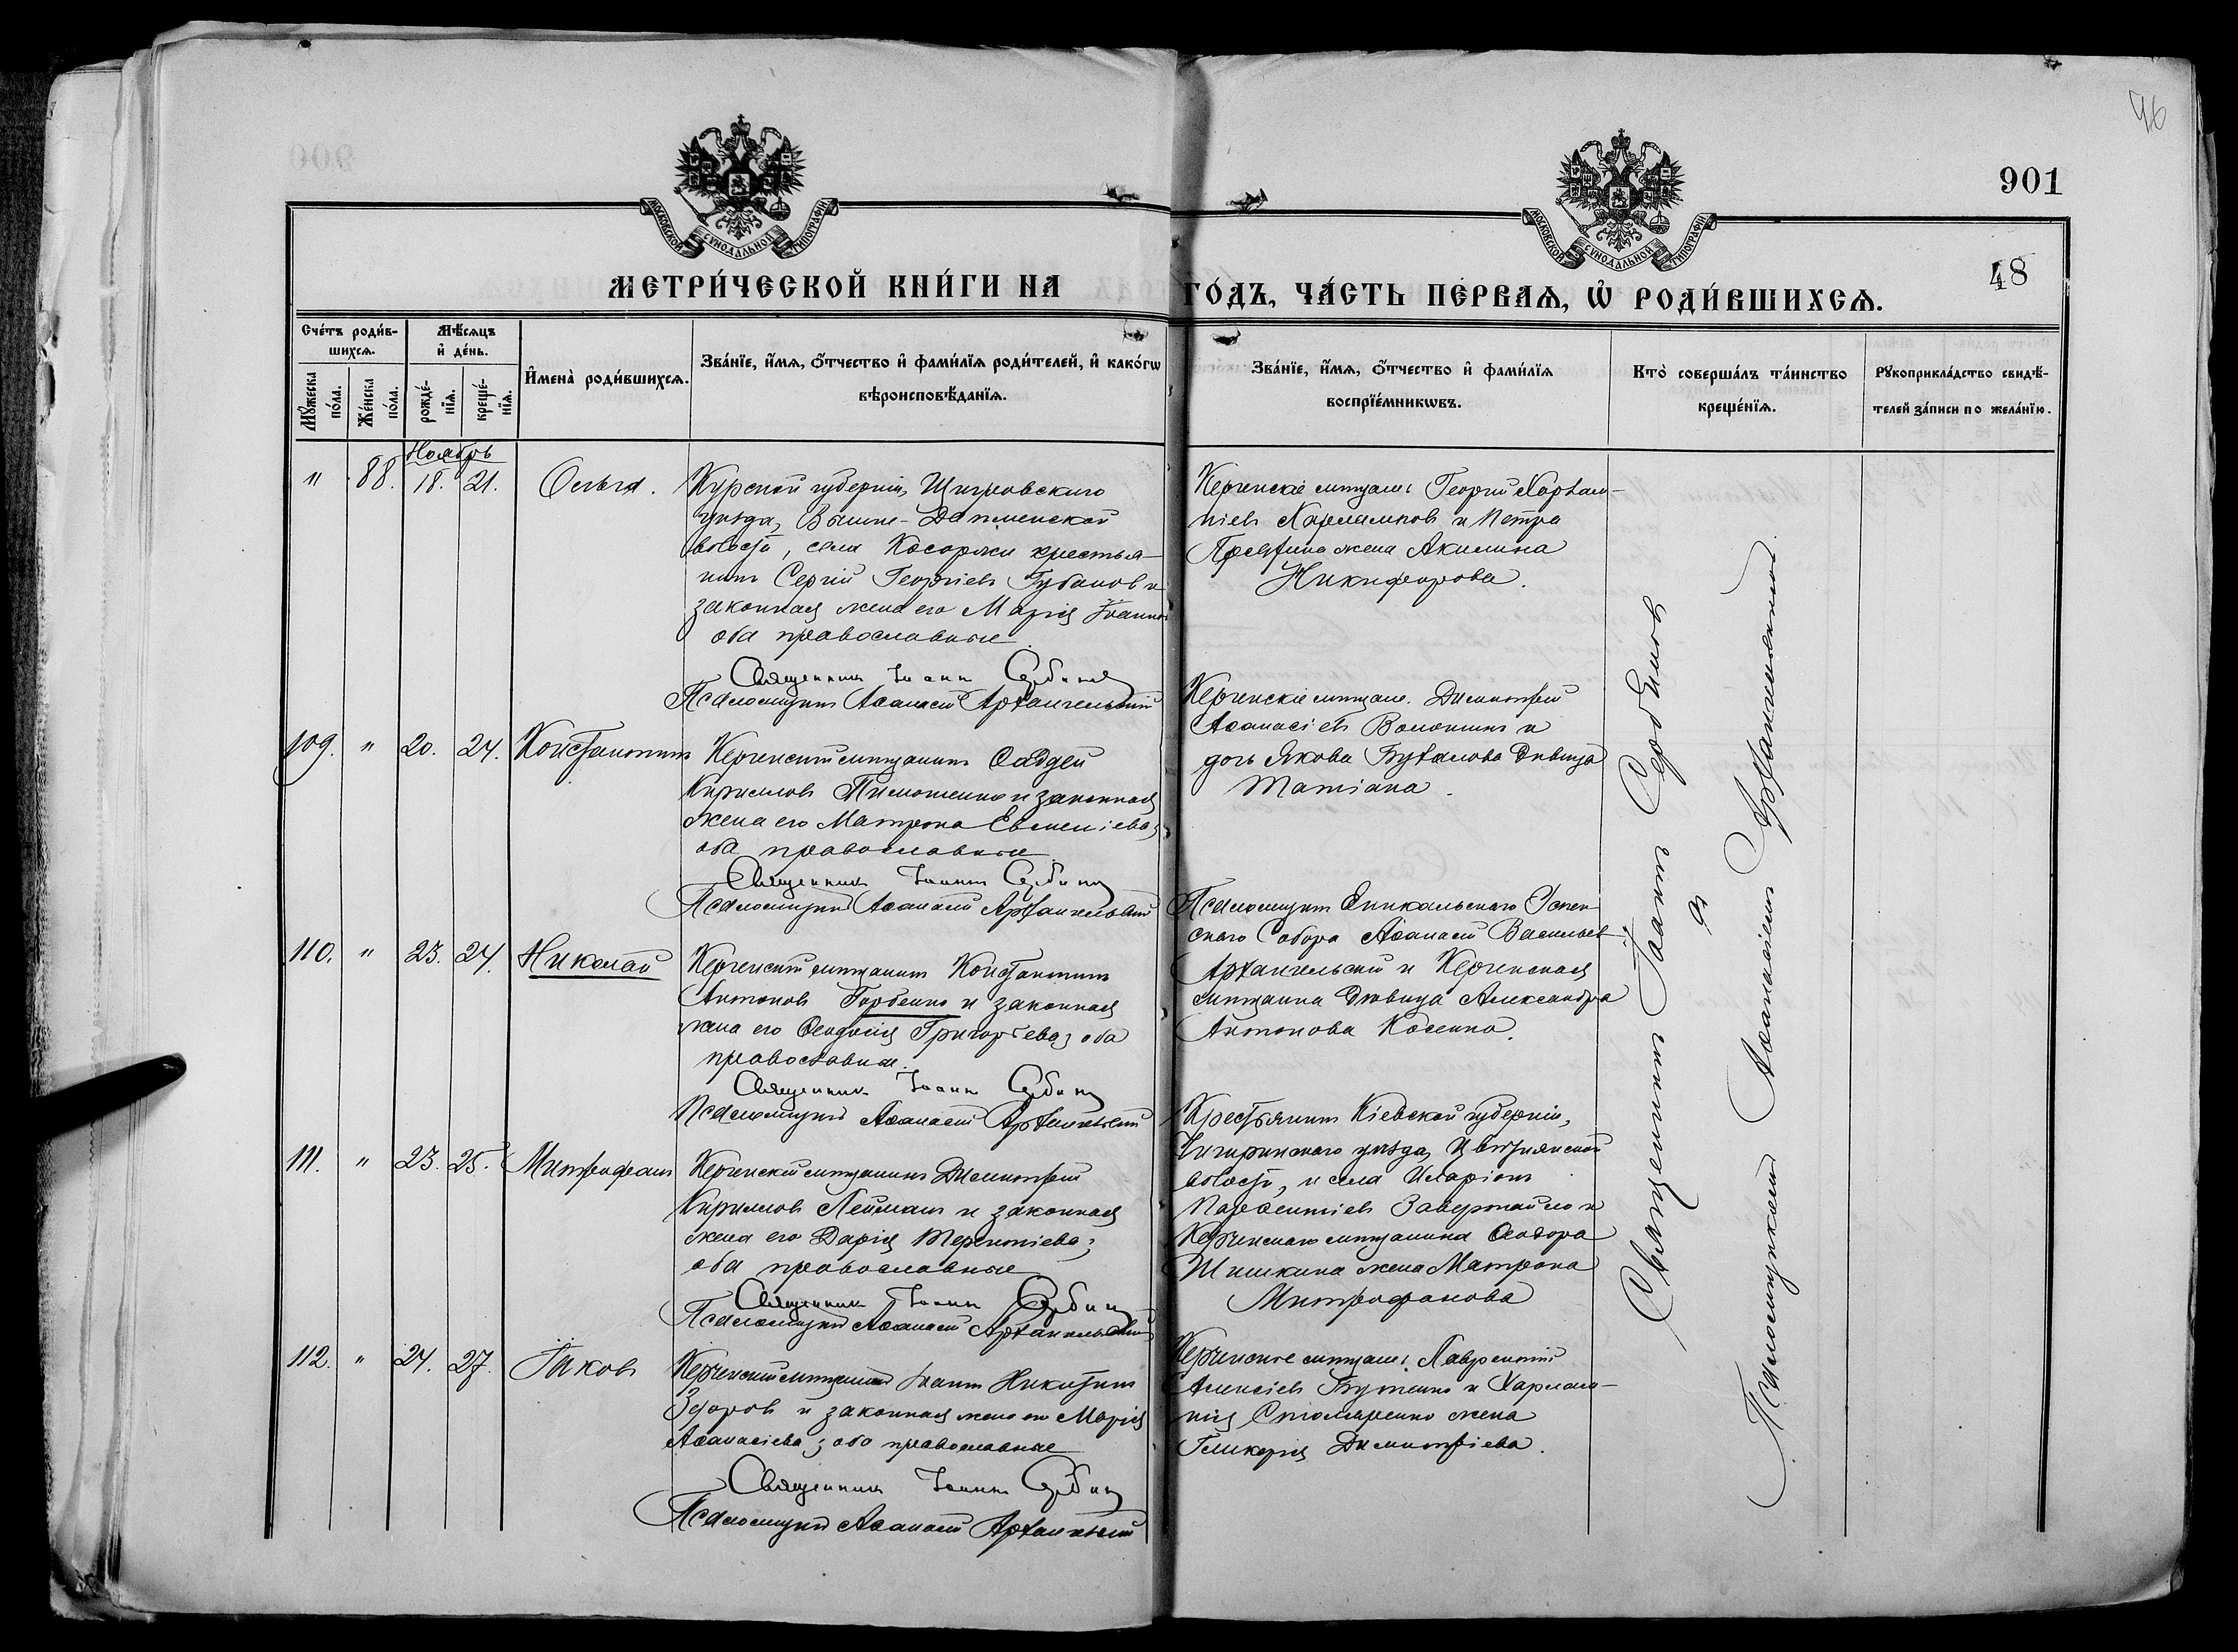 96
901
48
МОСКОВСКОЙ СѴНОДАЛЬНОЙ ТИПОГРАФІИ
МОСКОВСКОЙ СѴНОДАЛЬНОЙ ТИПОГРАФІИ
МЕТРИ́ЧЕСКОЙ КНИ́ГИ НА ГО́ДЪ, ЧА́СТЬ ПЕ́РВАЯ, Ѡ҆ РОДИ́ВШИХСЯ.
Сче́тъ роди́в-
шихся.
Мѣ́сяцъ
и҆ де́нь.
Мꙋ́жеска
по́ла.
Же́нска
по́ла.
рожде́-
нїя.
креще́-
нїя.
И҆мена̀ роди́вшихся.
Зва́нїе, и҆́мя, ѻ҆́тчество и҆ фами́лїя роди́телей, и҆ како́гѡ
вѣроисповѣ́данїя.
Зва́нїе, и҆́мя, ѻ҆́тчество и҆ фами́лїя
воспрїе́мникѡвъ.
Кто̀ соверша́лъ та́инство
креще́нїя.
Рꙋкоприкла́дство свидѣ́-
телей за́писи по жела́нїю.
Ноябрь
" 88. 18. 21. Ольга.
Курской губерніи, Щигровскаго
уѣзда, Вышне-
волости, села Косоржи крестья-
нинъ Сергій Георгіевъ Губановъ и
законная жена его Марія Іоаннов
оба православные
Священникъ Іоаннъ Сербиновъ
Псаломщикъ Аѳанасій Архангельскій
Керченскіе мѣщане: Георгій Харлам-
піевъ Харлампов и Петра
жена Акилина
Никифорова.
109. " 20. 24. Константинъ
Керченскій мѣщанинъ Ѳаддей
Кирилловъ Тимошенко и законная
жена его Матрона Евменіева,
оба православные
Священникъ Іоаннъ Сербиновъ
Псаломщикъ Аѳанасій Архангельскій
Керченскіе мѣщане. Димитрій
Аѳанасіевъ Волошинъ и
дочь Якова Бухалова дѣвица
Татіана.
110. " 23. 24. Николай
Керченскій мѣщанинъ Константинъ
Антоновъ Горбенко и законная
жена его Ѳеодосія Григорьева, оба
православные.
Священникъ Іоаннъ Сербиновъ
Псаломщикъ Аѳанасій Архангельскій
Псаломщикъ Еникальскаго Успен-
скаго Собора Аѳанасій Васильевъ
Архангельскій и Керченская
мѣщанка дѣвица Александра
Антонова Косенко.
111. " 23. 25. Митрофанъ
Керченскій мѣщанинъ Димитрій
Кирилловъ Лейманъ и законная
жена его Дарія Терентіева;
оба православные
Священникъ Іоаннъ Сербиновъ
Псаломщикъ Аѳанасій Архангельскій
Крестьянинъ Кіевской губерніи,
Чигиринскаго уѣзда,
волости, и села Иларіонъ
Парѳентіевъ и
Керченскаго мѣщанина Ѳеодора
Шишкина жена Матрона
Митрофанова
112. " 24. 27. Іаковъ
Керченскій мѣщанинъ Іоаннъ Никитинъ
Здоровъ и законная жена его Марія
Аѳанасіева; оба православные
Священникъ Іоаннъ Сербиновъ
Псаломщикъ Аѳанасій Архангельскій
Керченскіе мѣщане: Лаврентій
Алексіевъ Бутенко и Харлам-
пія Столяренко жена
Гликерія Димитріева.
Священникъ Іоаннъ Сербиновъ
и
Псаломщикъ Аѳанасій Архангельскій